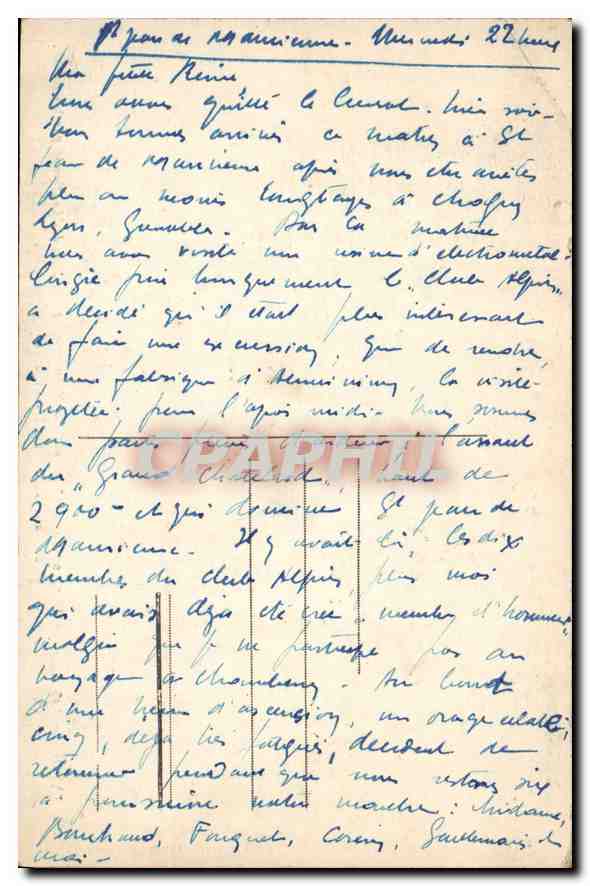 St Jean de Maurienne - Mercredi 22 heures
Ma petite Reine
Nous avons quitté le hier soir.
Nous sommes arrivés ce matin à St
Jean de Maurienne après nous être arrêtés
plus ou moins longtemps à Chagny
Lyon, Grenoble. Dans la matinée
nous avons visité une usine d'électrométal-
lurgie puis le "Club Alpin"
a décidé qu'il était plus intéressant
de faire une excursion, que de rendre,
à une fabrique d'aluminium, la visite
projetée pour l'après midi. Nous sommes
donc partis à l'assaut
du "Grand Châtelard", haut de
2900 - et qui domine St Jean de
Maurienne. Il y avait là, les dix
membres du Club Alpin, plus moi
qui avais déjà été créé "membre d'honneur"
malgré que je ne participe pas au
voyage à Chambéry. Au bout
d'une heure d'ascension, un orage éclate,
cinq, déjà très fatigués, décident de
retourner pendant que nous restons six
à poursuivre notre marche : Madame,
Bouchaud, Fouquet,
moi -
CPAPHIL